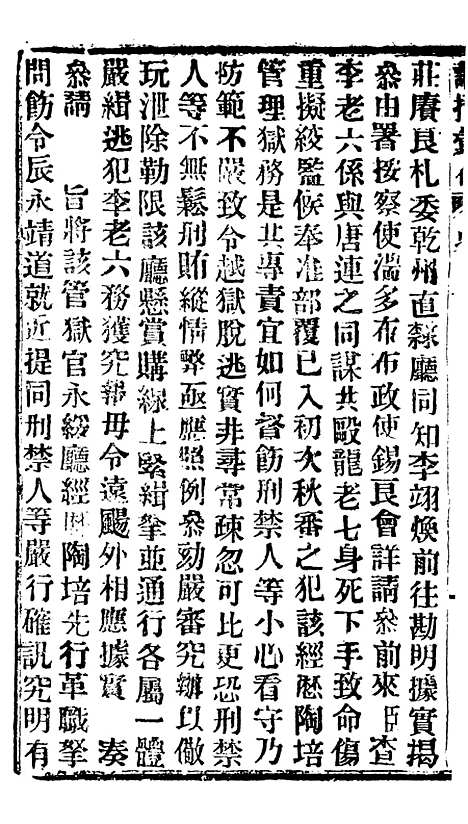 莊賡良札委乾州直隸廳同知李翊煥前往勘明據實揭
叅由署按察使湍多布布政使錫良會詳請叅前來臣查
李老六係與唐連之同謀共毆龍老七身死下手致命傷
重擬絞監候奉准部覆已入初次秋審之犯該經歷陶培
管理獄務是其專責宜如何督飭刑禁人等小心看守乃
防範不嚴致令越獄脫逃實非尋常疎忽可比更恐刑禁
人等不無鬆刑賄縱情弊亟應照例叅劾嚴審究辦以儆
玩泄除勒限該廳懸賞購線上緊緝拏並通行各屬一體
嚴緝逃犯李老六務獲究報毋令遠颺外相應據實 奏
叅請 旨將該管獄官永綏廳經歷陶培先行革職拏
問飭令辰永靖道就近提同刑禁人等嚴行確訊究明有